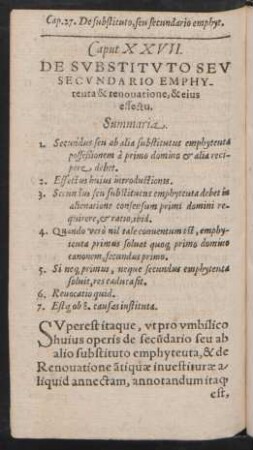 Cap. 27. De substituto, seu secundario emphyt.
Caput XXVII.
DE SVBSTITVTO SEV
SECVNDARIO EMPHY-
teuta & renouatione, & eius
effectu.
Summaria.
1. Secundus seu ab alia substitutus emphyteuta
possessionem à primo domino & alia reci-
pere debet.
2. Effectus huius introductionis.
3. Secundus seu substitutus emphyteuta debet in
alienatione consensum primi domini re-
quirere, & ratio, ibid.
4. Quando verò nil tale conuentum est, emphy-
teuta primus soluet quoq; primo domino
canonem, secundus primo.
5. Si neq; primus, neque secundus emphyteuta
soluit, res cadura sit.
6. Reuocatio quid.
7. Estq; ob 8. causas instituta.
SVperest itaque, vt pro vmbilico
huius operis de secūdario seu ab
alio substituto emphyteuta, & de
Renouatione ātiquæ inuestituræ a-
liquid annectam, annotandum itaq;
est,